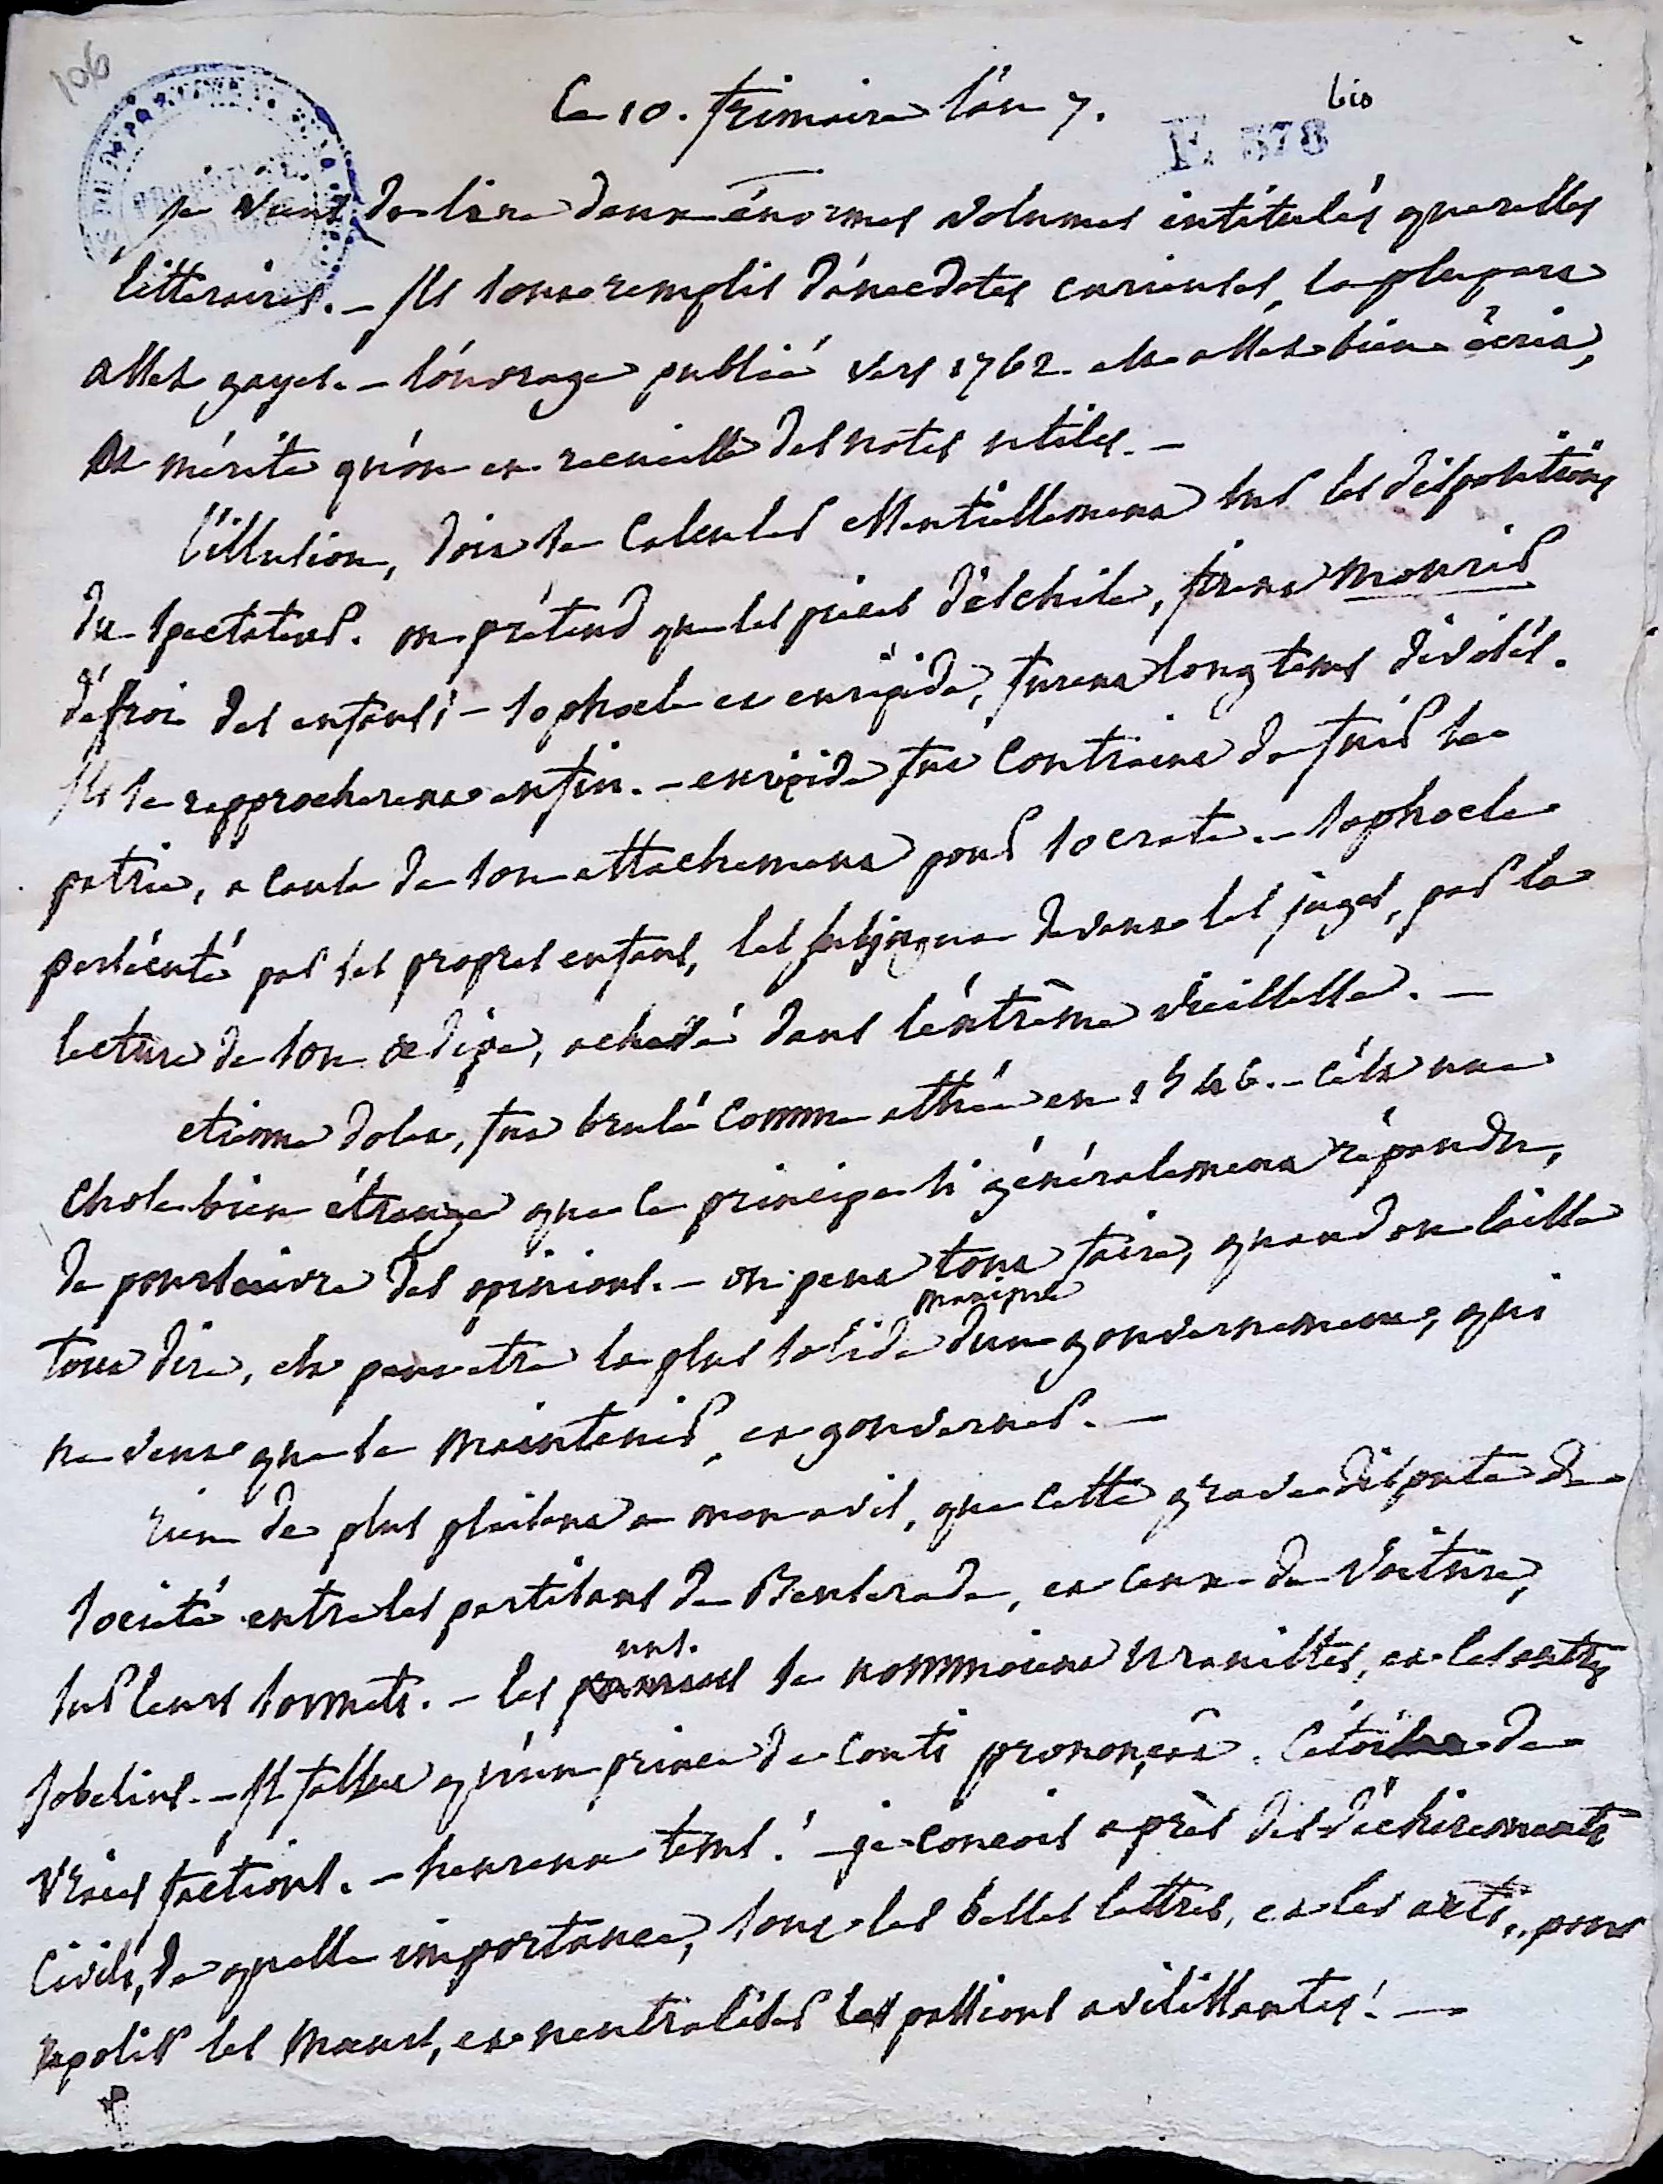 106
Ce 10. frimaire l'an 7.
bis
E 378
je viens de lire deux énormes volumes intitulés querelles
litteraires. - Ils sont remplis d'anecdotes curieuses, la plupart
assez gayes. - l'ouvrage publié vers 1762. est assez bien écrit,
et mérite qu'on en recueille des notes utiles. -
L'illusion, doit se calculer essentiellement sur les dispositions
du spectateur. on prétend que les pieces d'eschile, firent mourir
d'effroi des enfants; - sophocle et euripide, furent long tems divisés.
Ils se rapprocherent enfin. - euripide fut contraint de fuir sa
patrie, a cause de son attachement pour socrate. - sophocle
persécuté par ses propres enfans, les devant les juges, par la
lecture de son œdipe, achevé dans l'extrême vieillesse. -
etienne dolet, fut brulé comme athée en 1546. - c'est une
chose bien étrange que ce principe si généralement répandu,
de poursuivre des opinions. - on peut tout faire, quand on laisse
maxime
tout dire, est peut etre la plus solide d'un gouvernement, qui
ne veut que se maintenir, et gouverner. -
rien de plus plaisant a mon avis, que cette grave dispute de
société entre les partisans de Benserade, et ceux de Voiture,
uns.
sur leurs sonnets. - les se nommoient uranistes, et les autres
Jobelins. - Il fallut qu'un prince de Conti prononçat. C'étoit de
vraies factions. - heureux tems! - je conçois après des déchirements
civils, de quelle importance, sont les belles lettres, et les arts, pour
repolir les mœurs, et neutraliser les passions avilissantes! -